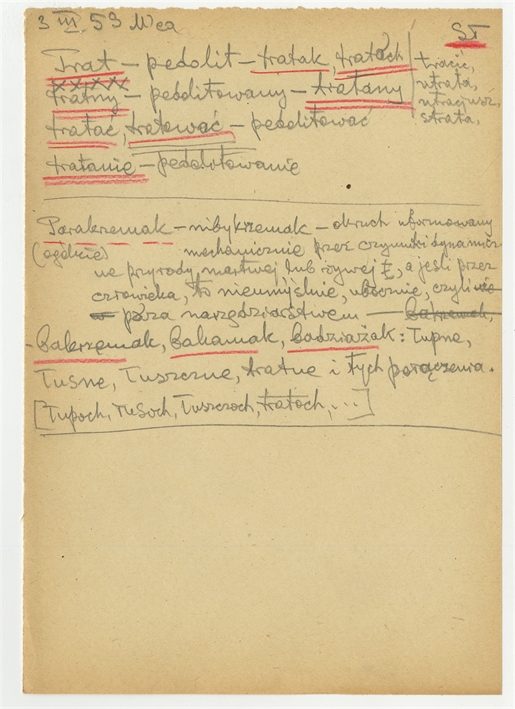 3 III 59 Wea
ST
Trat – pedolit – tratak, tratoch
tracić,
utrata,
utracjusz,
strata,
tratny – peddlitowany – tratany
tratać, tratować – peddlitować
tratanie – peddlitowanie
Parakrzemak – nibykrzemak – okruch uformowany
(ogólnie) mechanicznie przez czynniki dynamicz-
ne przyrody martwej lub żywej, a jeśli przez
człowieka, to nieumyślnie, ubocznie, czyli
poza narzędziarstwem –
– bakrzemak, bakamak, badziażak: Tupne,
Tusne, Tuszczne, tratne i tych połączenia.
[Tupoch, Tusoch, Tuszczoch, tratoch, ...]